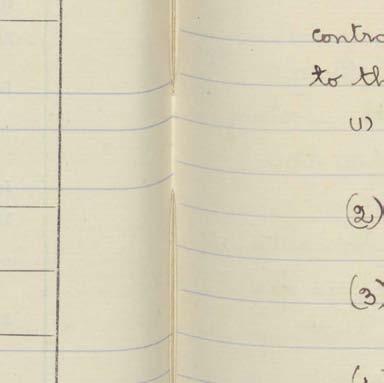 contro
to th
(1)
(2)
(3)